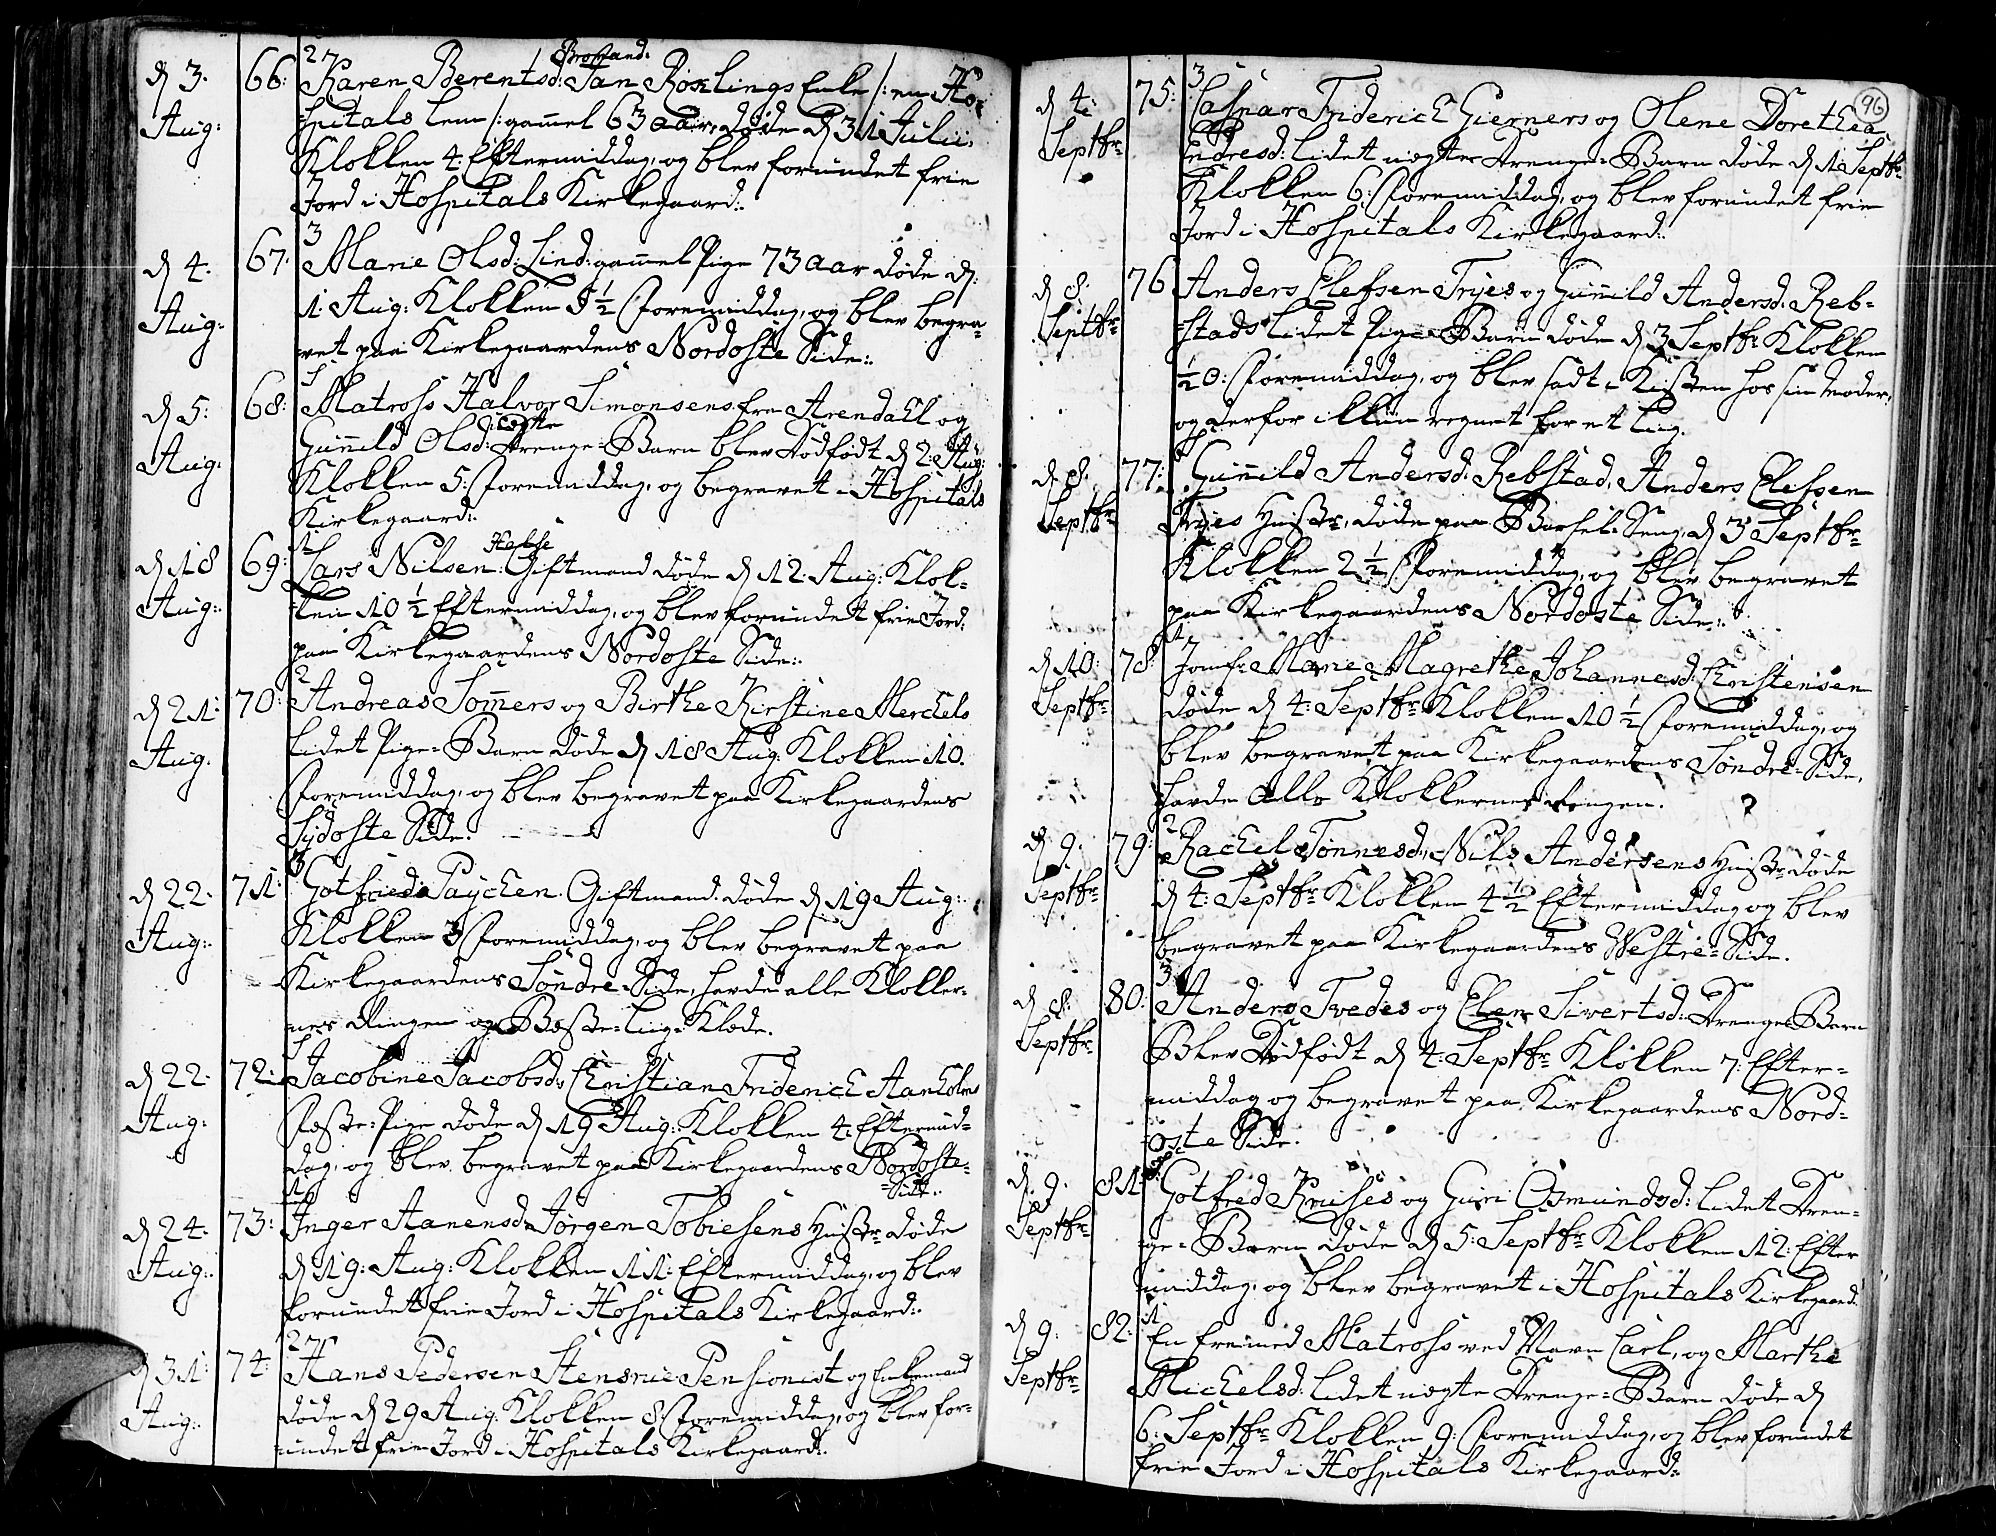 d 3. Aug: 66: 2
Brostrand:
Karen Berentsd: Jan Röslings Enke /: en Ho-
spitals Lem /: gammel 63 aar, døde d 31 Julii
Klokken 4: Eftermiddag, og blev forundet frie
Jord i Hospitals Kirkegaard:.
d 4. Aug: 67: 3
Marie Olsd: Lind: gammel Pige 73 aar døde d:
1. Aug: Klokken 5½ Foremiddag, og blev begra-
vet paa Kirkegaardens Nordoste Side:.
d 5: Aug: 68:
Matross Halvor Simonsens fra Arendahl og
Gunnild Olsd: ægte Drenge-Barn blev Dødfødt d 2: Aug:
Klokken 5: Foremiddag, og begravet i Hospitals
Kirkegaard:.
d 18 Aug: 69: 1
Lars Nilsen Giftmand døde d 12 Aug: Klok-
ken 10½ Eftermiddag, og blev forundet frie Jord
paa Kirkegaardens Nordoste Side:.
d 21: Aug. 70: 2
Andreas Sommers og Birthe Kirstine Merchels
lidet Pige-Barn døde d 18 Aug: Klokken 10.
Foremiddag, og blev begravet paa Kirkegaardens
Sydoste Side:
d 22: Aug: 71: 3
Gotfried Paychen Giftmand døde d 19 Aug:
Klokken 3 Foremiddag, og blev begravet paa
Kirkegaardens Søndre-Side, havde alle Klokker-
nes Ringen og Beste-Liig-Klæde.
d 22: Aug: 72:
Jacobine Jacobsd: Christian Friderich Aanholms
Pige døde d 19 Aug: Klokken 4: Eftermid-
dag, og blev begravet paa Kirkegaardens Nordoste-
Side:.
d 24: Aug: 73: 1
Inger Aanensd: Jørgen Tobiesens Hustr: døde
d 19: Aug: Klokken 11: Eftermiddag, og blev
forundet frie Jord i Hospitals Kirkegaard:.
d 31: Aug: 74: 2
Hans Pedersen Stensrue Pensionist og Enkemand
døde d 29 Aug: Klokken 8 Foremiddag, og blev for-
undet frie Jord i Hospitals Kirkegaard:.
96
d 4: Septbr: 75: 3
Caspar Friderich Gierners og Olene Dorethea
Endresd: lidet uægte Drenge-Barn døde d 1 Septbr:
Klokken 6: Foremiddag, og blev forundet frie
Jord i Hospitals Kirkegaard:.
d 8. Septbr: 76
Anders Elefsen Tryes og Gunnild Andersd: Reb-
stads lidet Pige-Barn døde d 3 Septbr: Klokken
½ Foremiddag, og blev sadt i Kisten hos sin Moder,
og derfor ikkun regnet for et Liig.
d 8. Septbr: 77:
Gunnild Andersd: Rebstad, Anders Elefsen
Tryes Hustr:, døde paa Barsel-Seng, d 3 Septbr:
Klokken 2½ Foremiddag, og blev begravet
paa Kirkegaardens Nordoste Side:.
d 10: Septbr: 78: 1
Jomfr: Marie Magrethe Johannesd: Christensen
døde d 4: Septbr: Klokken 10½ Foremiddag, og
blev begravet paa Kirkegaardens Søndre-Side,
havde alle Klokkernes Ringen.
d 9. Septbr: 79: 2
Rachel Tønnesd: Nils Andersens Hustr: døde
d 4: Septbr: Klokken 4½ Eftermiddag og blev
begravet paa Kirkegaardens Westre-Side.
d 8: Septbr: 80: 3
Anders Tvedes og Elen Sivertsd: Drenge-Barn
Blev Dødfødt d 4: Septbr: Klokken 7: Efter-
middag og begravet paa Kirkegaardens Nord-
oste Side.
d 9. Septbr: 81:
Gotfred Kruses og Guri Osmundsd: lidet Dren-
ge-Barn døde d 5: Septbr: Klokken 12: Efter
middag, og blev begravet i Hospitals Kirkegaard:
d 9. Septbr: 82: 1
En fremmed Matross ved Navn Carl, og Marthe
Michelsd: lidet uægte Drenge-Barn døde d
6: Septbr: Klokken 9: Foremiddag, og blev forundet
frie Jord i Hospitals Kirkegaard: